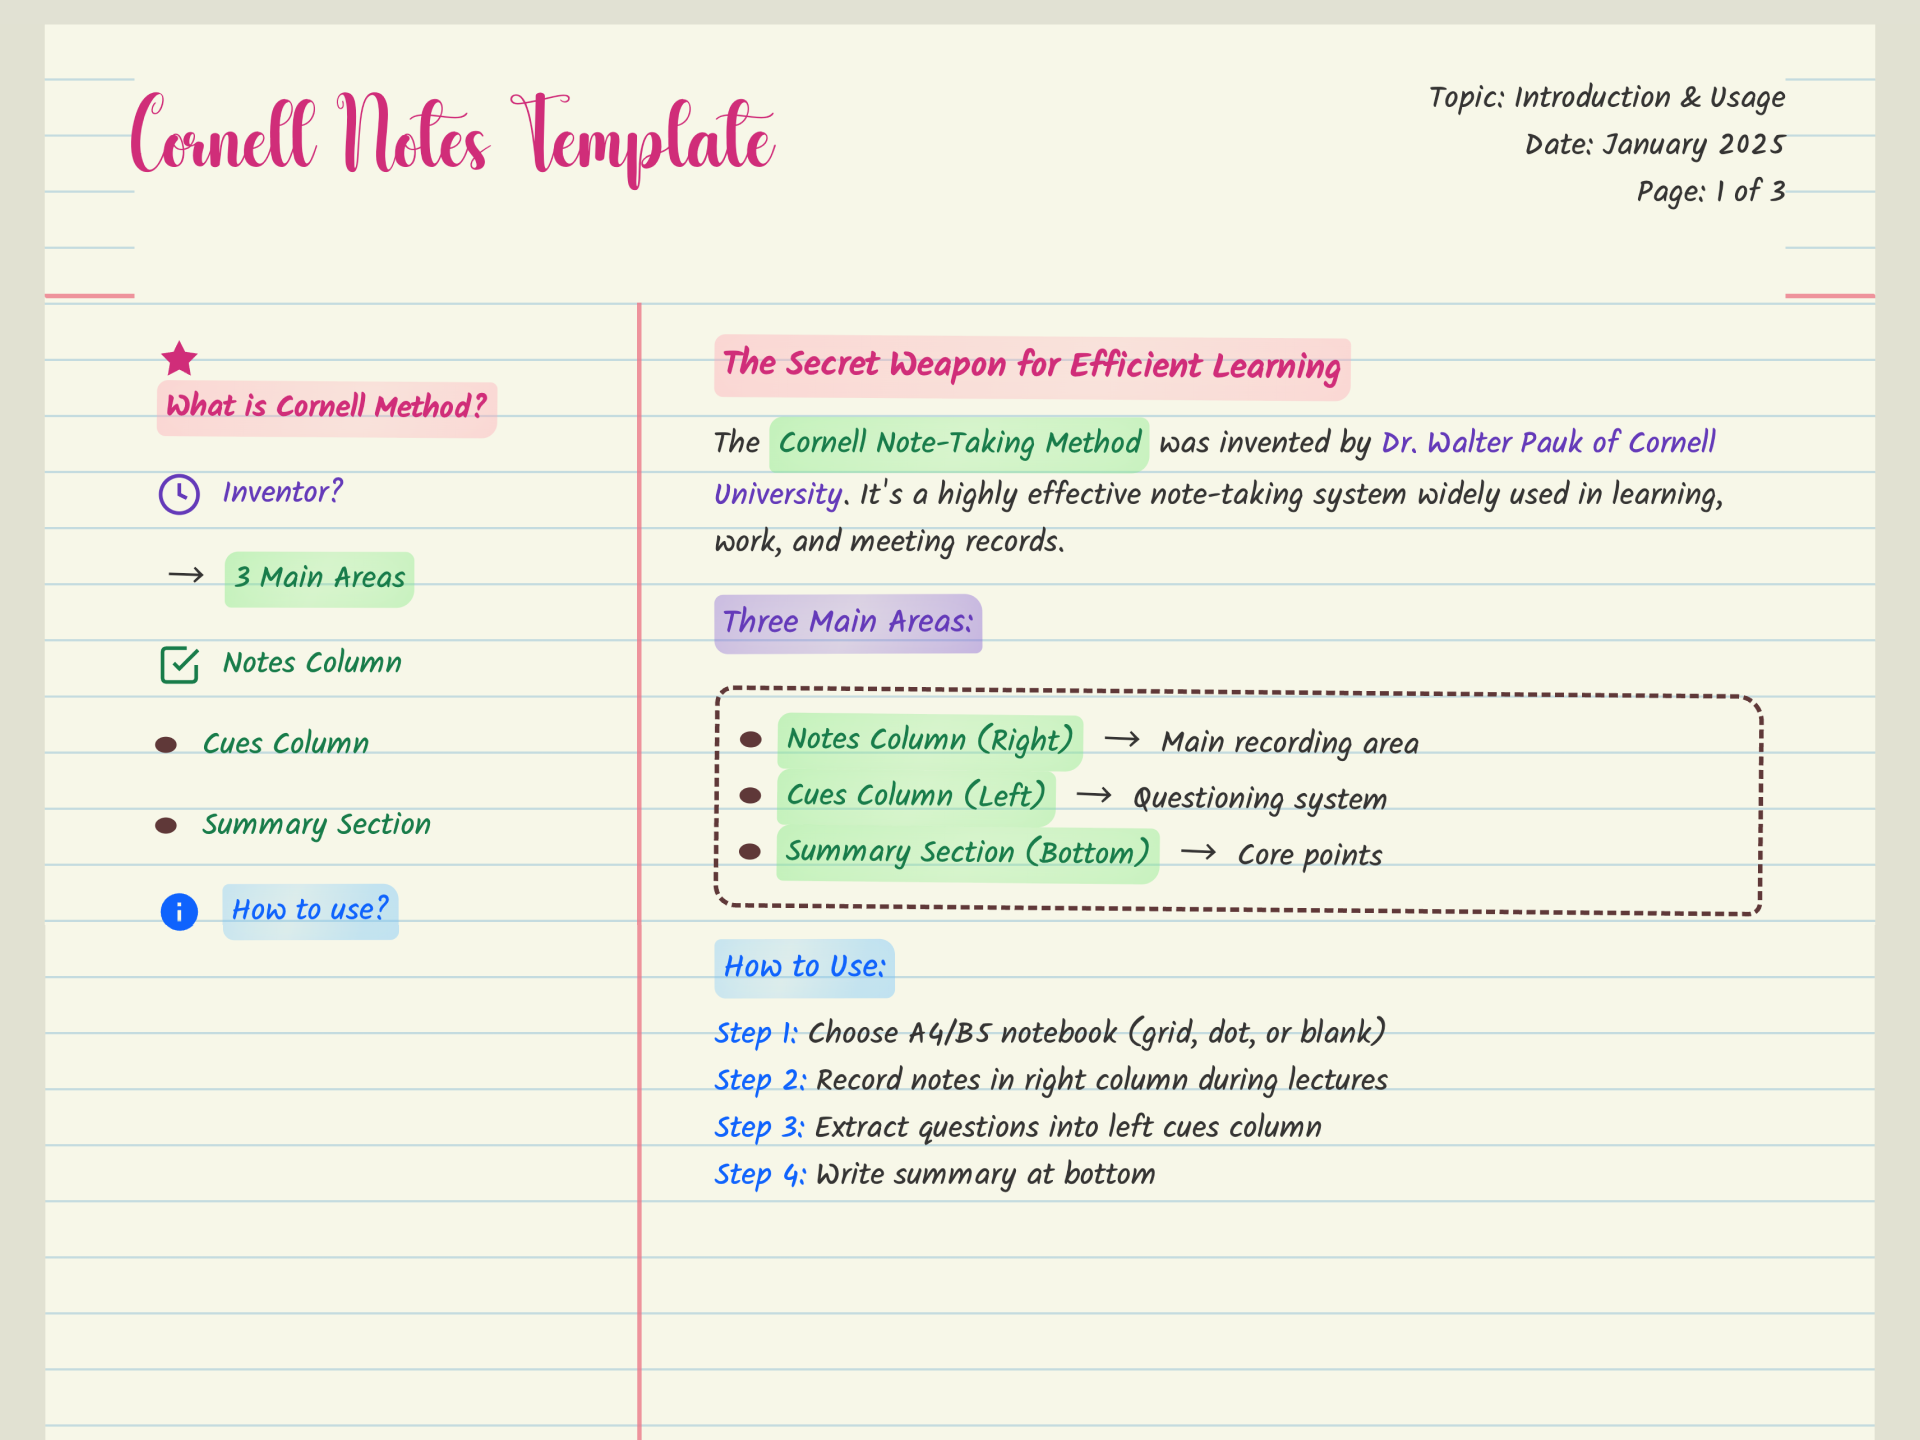 Cornell Notes Template
Topic: Introduction & Usage
Date: January 2025
Page: 1 of 3
What is Cornell Method?
Inventor?
→ 3 Main Areas
Notes Column
Cues Column
Summary Section
How to use?
The Secret Weapon for Efficient Learning
The Cornell Note-Taking Method was invented by Dr. Walter Pauk of Cornell
University. It's a highly effective note-taking system widely used in learning,
work, and meeting records.
Three Main Areas:
Notes Column (Right) → Main recording area
Cues Column (Left) → Questioning system
Summary Section (Bottom) → Core points
How to Use:
Step 1: Choose A4/B5 notebook (grid, dot, or blank)
Step 2: Record notes in right column during lectures
Step 3: Extract questions into left cues column
Step 4: Write summary at bottom